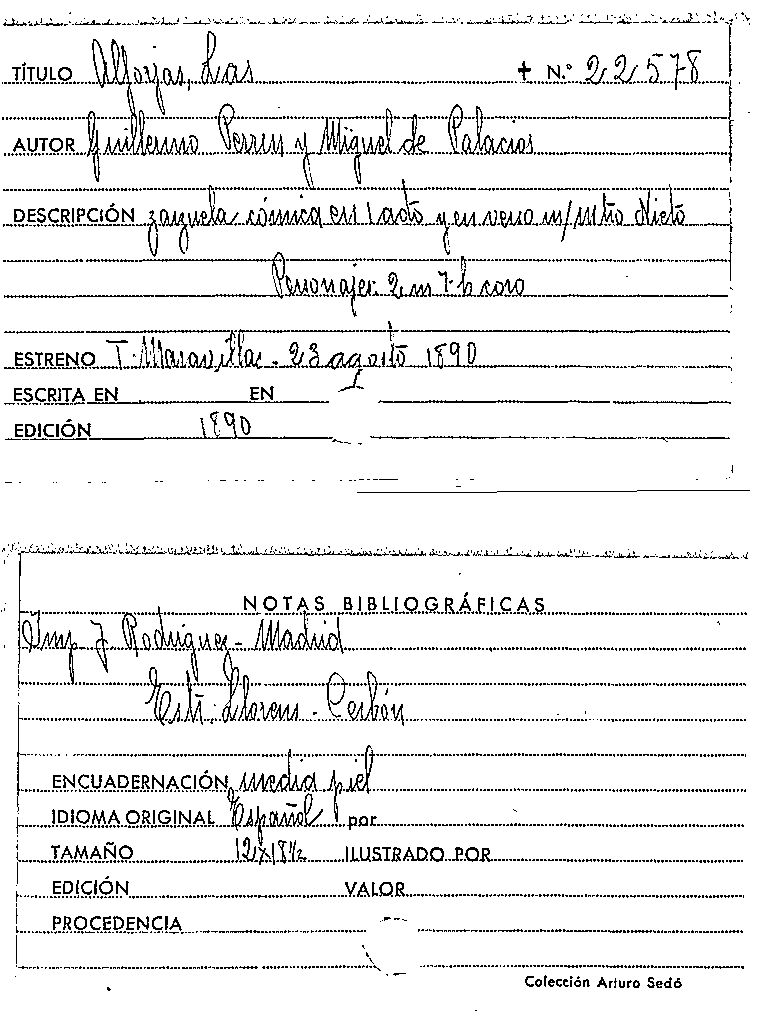 TÍTULO Alforjas, Las + N.º 22578
AUTOR Guillermo Perrin y Miguel de Palacios
DESCRIPCIÓN zarzuela cómica en 1 acto y en verso m/mtro Nieto
Personajes. 2 m 7 h coro
ESTRENO T. Maravillas - 23 agosto 1890
ESCRITA EN EN
EDICIÓN 1890
NOTAS BIBLIOGRÁFICAS
Imp J Rodriguez - Madrid
Estr: Llorens - Cerbón
ENCUADERNACIÓN media piel
IDIOMA ORIGINAL Español por
TAMAÑO 12x18½ ILUSTRADO POR
EDICIÓN VALOR
PROCEDENCIA
Colección Arturo Sedó